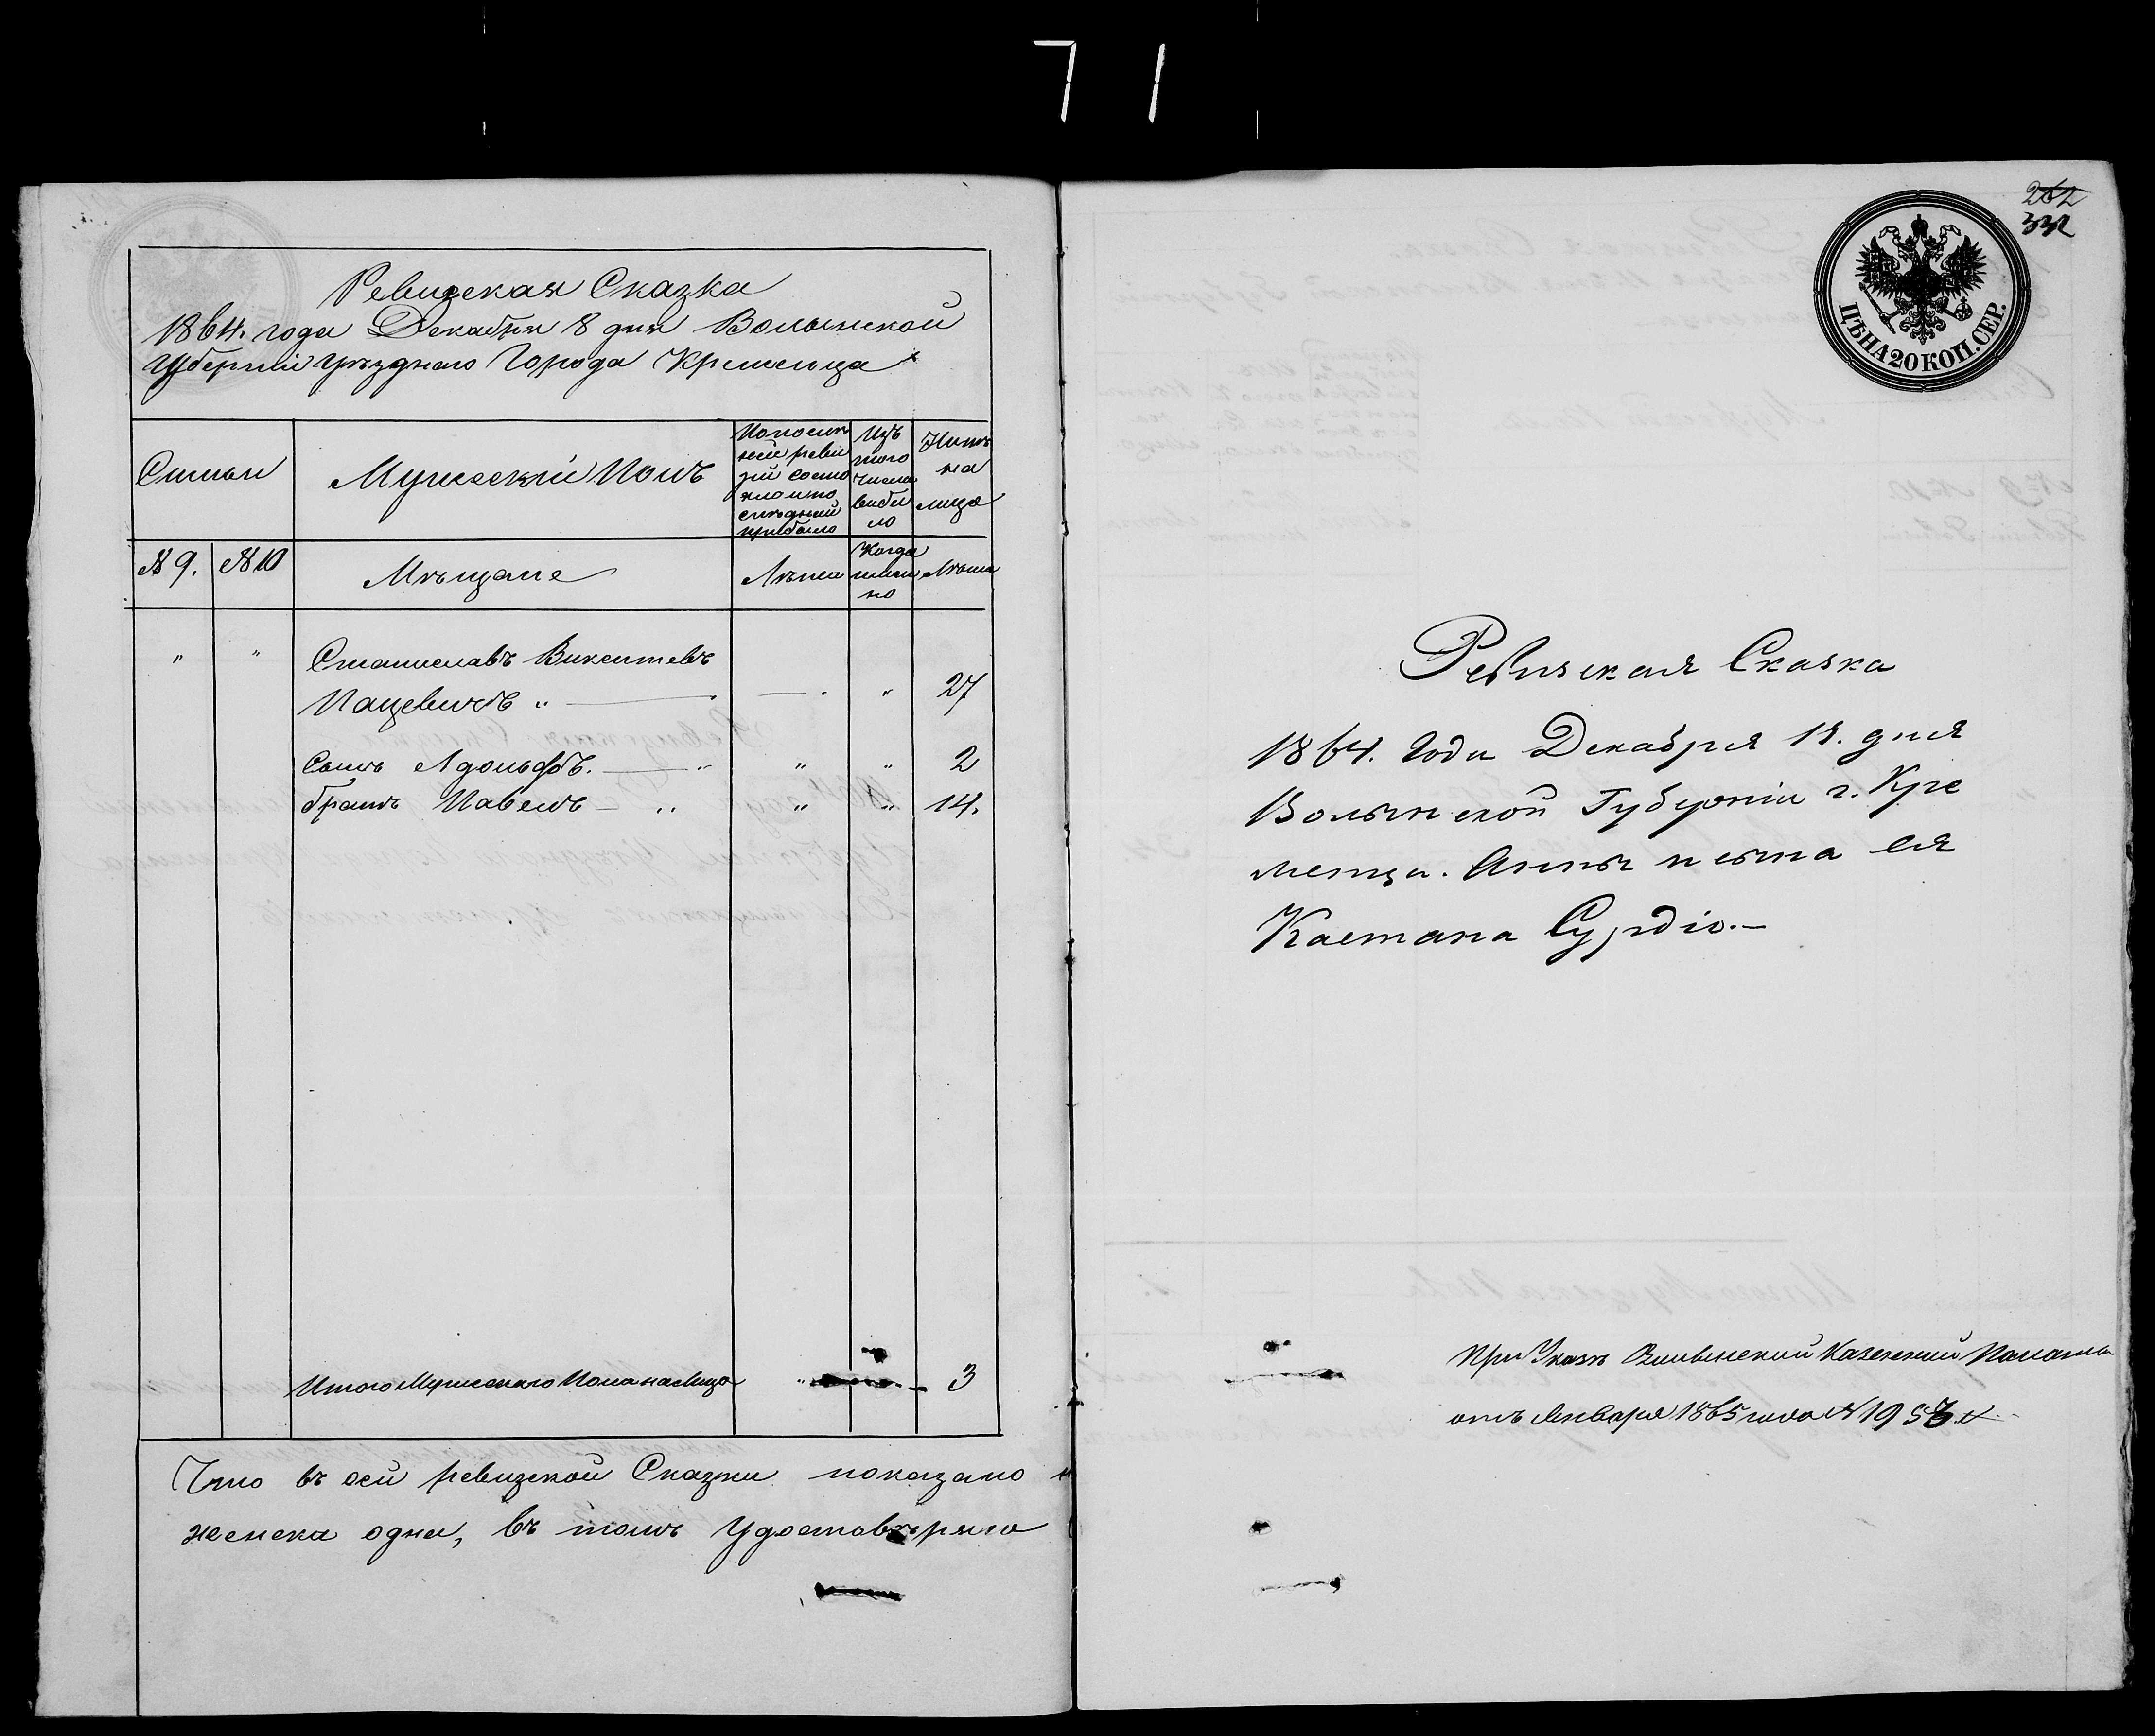 71
Ревизская Сказка
1864. года Декабря 8 дня Волынской
Губерніи Уѣзднаго Города Кременца
Семьи
Мужескій Полъ
По послѣд
ней реви
зіи состо
яло и по
слѣдней
прибыло
Изъ
того
числа
выбы
ло
Нынѣ
на
лицо
№ 9.
№ 10
Мѣщане
Лѣта
Когда
имен
но
Лѣта
" "
Станиславъ Викентьевъ
Пацевичъ " — — " 27
сынъ Адольфъ. — " " " 2
братъ Павелъ — " " " 14.
Итого Мужескаго Пола на Лицо " 3
Что въ сей ревизской Сказки показано
женска одна, въ томъ Удостовѣряю
262
332
ЦѢНА 20 КОП. СЕР.
Ревизская Сказка
1864. Года Декабря 18. дня
Волынской Губерніи г. Кре
менца. Анны и сына ея
Каетана Сурдіо.—
При Указѣ Волынской Казенной Палаты
отъ Января 1865 года №